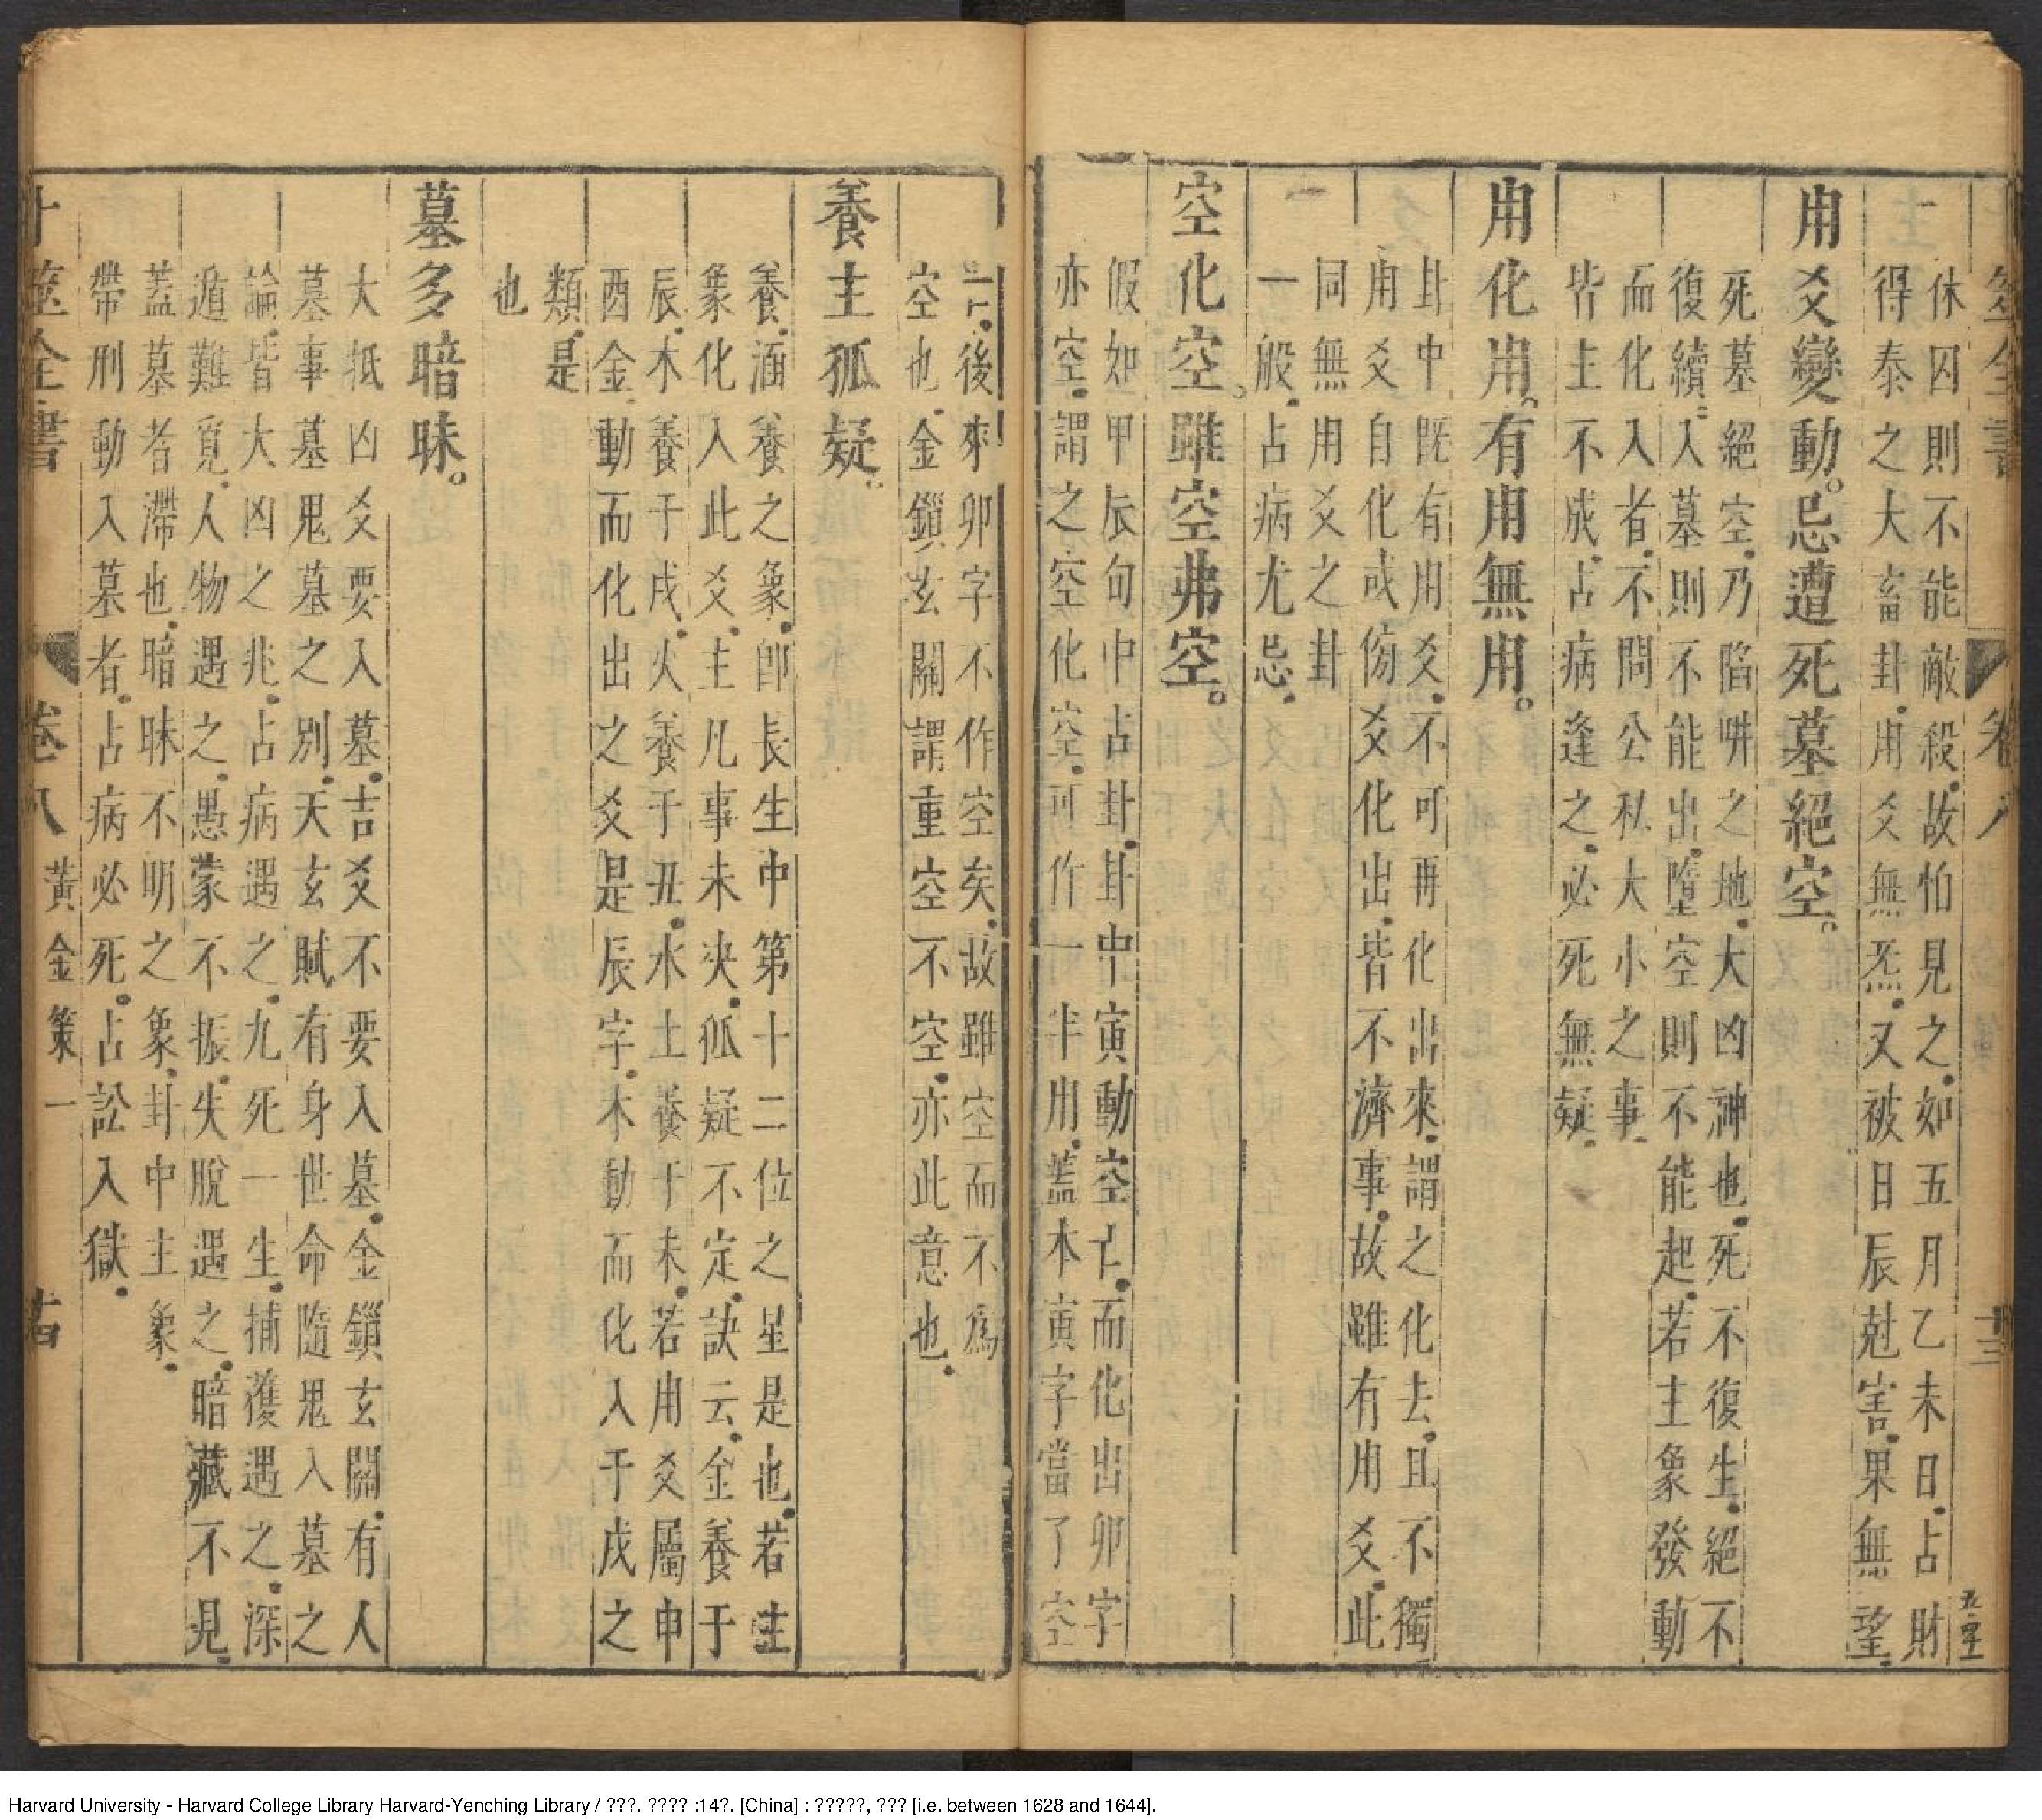 休囚則不能敵殺故怕見之如五月乙未日占財
得泰之大畜卦用爻無炁又被日辰尅害果無望
用爻變動。忌遭死墓絕空。
死墓絕空乃陷阱之地大凶神也死不復生絕不
復續入墓則不能出墮空則不能起若主象發動
而化入者不問公私大小之事
皆主不成占病逢之必死無疑
用化用。有用無用。
卦中既有用爻不可再化出來謂之化去且不獨
用爻自化或傍爻化出皆不濟事故雖有用爻此
同無用爻之卦
一般占病尤忌
空化空。雖空弗空。
假如甲辰旬中占卦卦中寅動空亡而化出卯字
亦空謂之空化空可作一半用蓋本寅字當了空
亡後來卯字不作空矣故雖空而不為
空也金鎖玄關謂重空不空亦此意也
養主狐疑。
養涵養之象卽長生中第十二位之星是也若主
象化入此爻主凡事未决狐疑不定訣云金養于
辰木養于戌火養于丑水土養于未若用爻屬申
酉金動而化出之爻是辰字木動而化入于戌之
類是
也
墓多暗昧。
大抵凶爻要入墓吉爻不要入墓金鎖玄關有人
墓事墓鬼墓之別天玄賦有身世命隨鬼入墓之
論皆大凶之兆占病遇之九死一生捕獲遇之深
遁難覓人物遇之愚蒙不振失脫遇之暗藏不見
蓋墓者滯也暗昧不明之象卦中主象
帶刑動入墓者占病必死占訟入獄
卜筮全書 卷八 黃金策一 十四